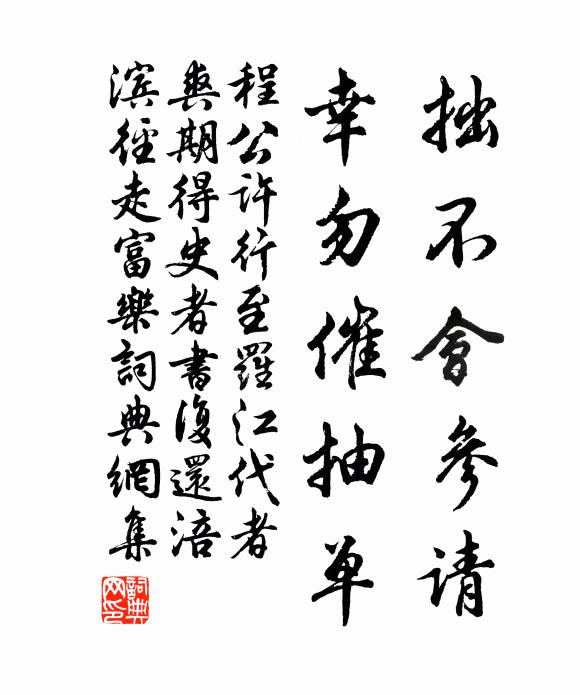 拙不會參请
幸勿催抽单
程公許行至羅江代者
爽期得史者書復還涪
滨徑走富樂詞典網集
詞典
网印